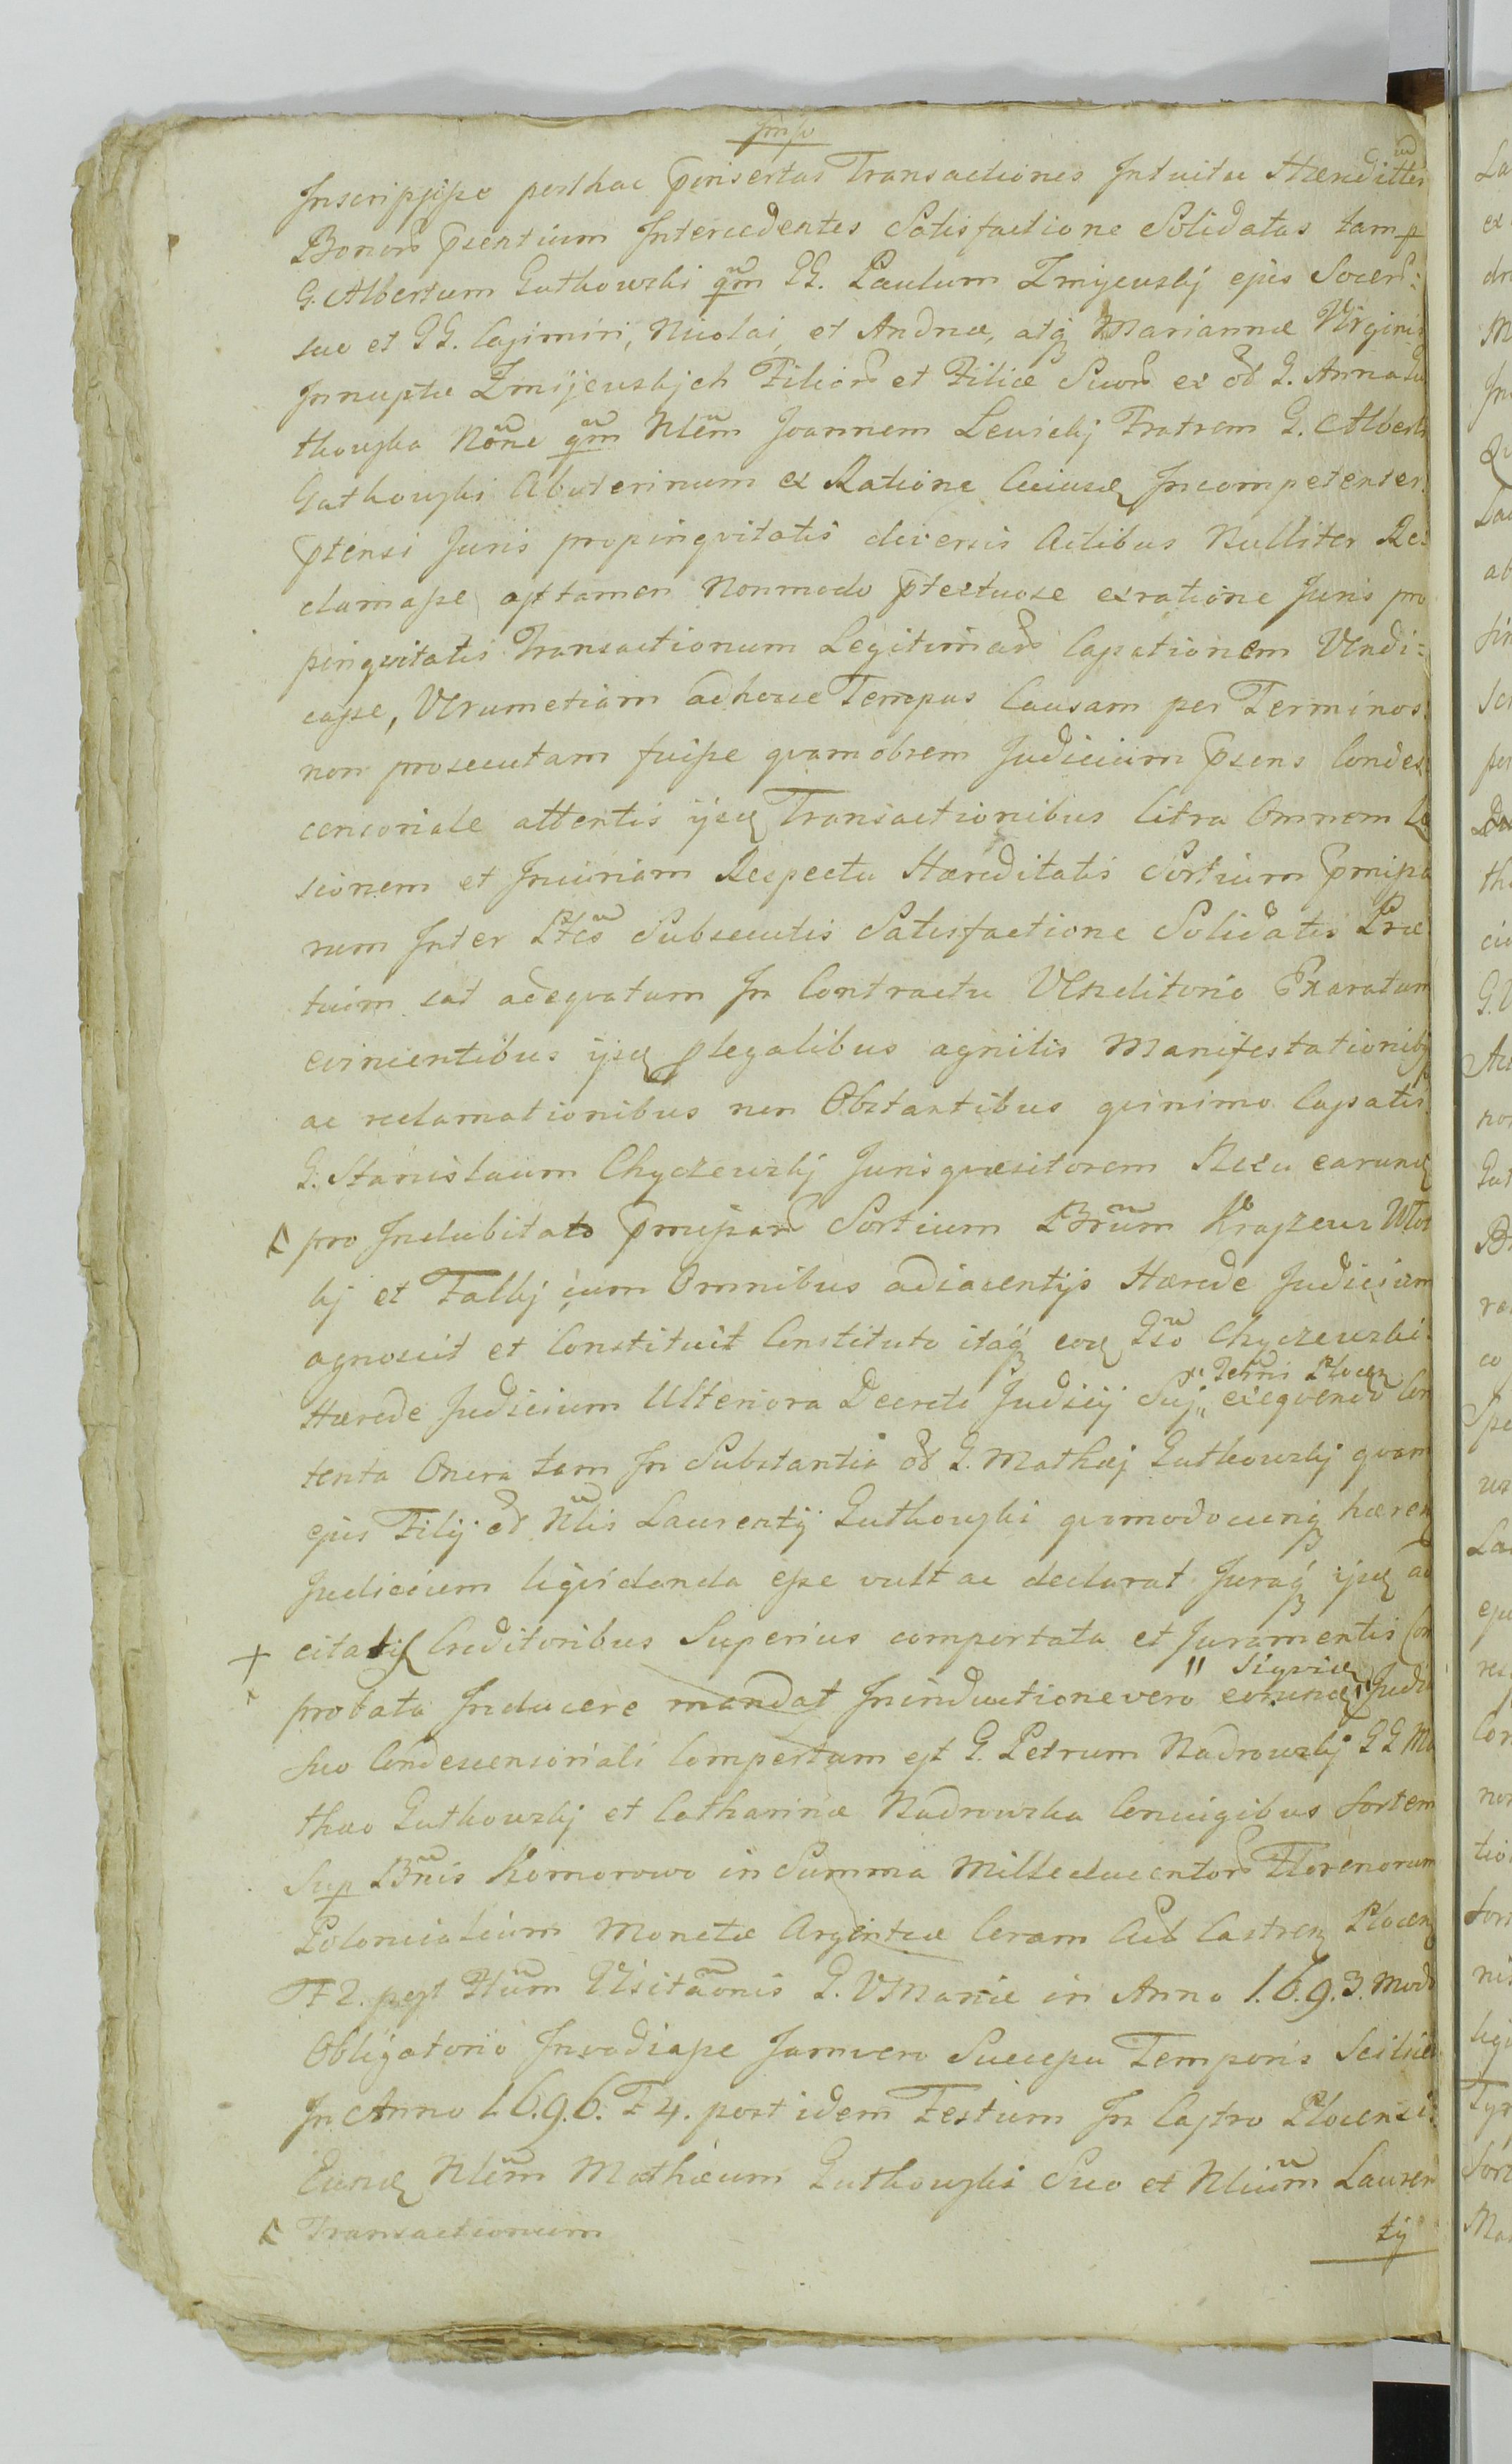 Inscripsisse posthac pinsertas Transactiones Intuitu Hæredittis
Bonorū psentium Intercedentes Satisfactione Solidatas tam p
G. Albertum Gutkowski qm̃ GG. Paulum Zmijewskj ejus Socerū
sue et GG. Casimiri, Nicolai, et Andreæ, atq Mariannæ Virginis
Innuptæ Zmijewskjch Filiorū et Filiæ Suorū ex od G. Anna Gu
tkowska Nõne qm̃ Nlẽm Joannem Lewickj Fratrem G. Alberti
Gutkowski Abuterinum ex Ratione Cuiusd Incompetenter
ptensi Juris propinqvitatis diversis Actibus Nulliter Re:
clamasse attamen Nonmodo ptextuose exratione Juris pro
pinqvitatis Transactionum Legitimarū Cassationem Vendi:
casse, Verumetiam adhocce Tempus Causam per Terminos
non prosecutam fuisse qvamobrem Judicium psens Condes
censoriale attentis ijsd Transactionibus Citra Omnem Læ
sionem et Iniuriam Respectu Hæreditatis Sortium pmisso
rum Inter Ptẽs Subsecutis Satisfactione Solidatis Præ
tium sat adeqvatum In Contractu Venditorio Exaratum
evincentibus ijsd plegalibus agnitis Manifestationibq
ac reclamationibus non Obstantibus qvinimo Cassatis
G. Stanislaum Chyczewskj Jurisqvæsitorem Nexu earund
pro Indubitato pmissarū Sortium Bnrũm Kraszew Wit
kj et Falkj cum Omnibus adiacentijs Hærede Judicium
agnoscit et Constituit Constituto itaq eod Gso Chyczewski
" Trĩis Plocen
Hærede Judicium Ulteriora Decreto Judicij Sui,, exeqvendo Con
tenta Onera tam In Substantia od G. Mathæj Gutkowskj qvam
ejus Filij od Nlis Laurentij Gutkowski qvomodocunq hæren
Judicium liqvidanda esse vult ac declarat Juraq ijsd ad
citatis Creditoribus Superius comportata et Juramentis Com
" Siqvid
probata Inducere mandat Ininductionevero eorund" Judo
suo Condescensoriali Compertum est G. Petrum Nadrowskj GG Ma
thæo Gutkowskj et Catharinæ Nadrowska Conjugibus Sortem
Sup Bnis Komorowo in Summa Milleducentorū Florenorum
Polonicalium Monetæ Argenteæ Coram Act Castren Plocen
F 2. post Ftũm Visitãonis B. V Mariæ in Anno 1.6.9.3. Modo
Obligatorio Invadiasse Jamvero Sucessu Temporis Scilicet
In Anno 1.6.9.6. F 4. post idem Festum In Castro Plocensi
Eund Nlẽm Mathæum Gutkowski Suo et Nliũm Lauren
Transactionum
tij